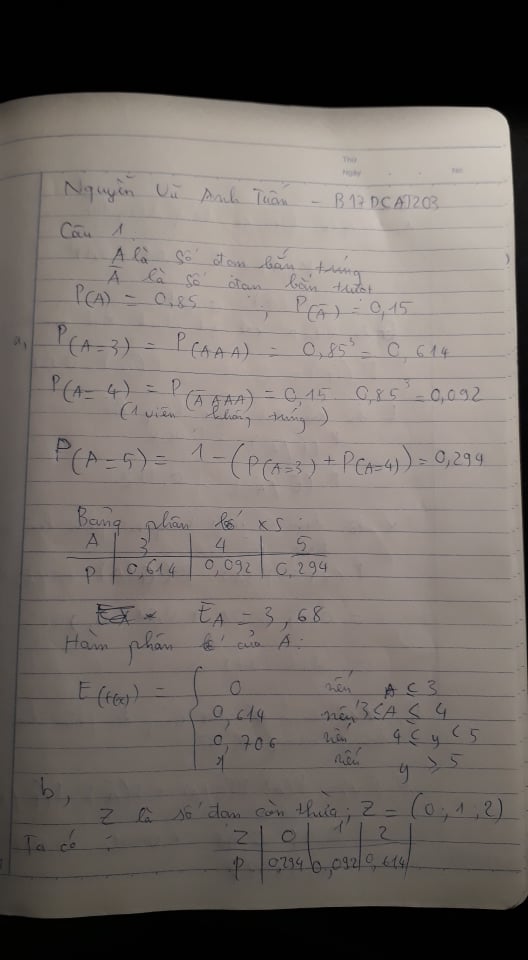 Thứ
Ngày
No
Nguyễn Vũ Anh Tuấn - B17DCAT203
Câu 1
A là số đan bắn trúng
Ā là số đan bắn trượt
P(A) = 0,85 ; P(Ā) = 0,15
a, P(A=3) = P(AAA) = 0,85³ = 0,614
P(A=4) = P(ĀAAA) = 0,15 0,85³ = 0,092
(1 viên không trúng)
P(A=5) = 1 - (P(A=3) + P(A=4)) = 0,294
Bảng phân bố xs:
A | 3 | 4 | 5
P | 0,614 | 0,092 | 0,294
EA = 3,68
Hàm phân bố của A:
E(f(x)) = { 0 nếu A ≤ 3
0,614 nếu 3 ≤ A ≤ 4
0,706 nếu 4 ≤ y < 5
1 nếu y ≥ 5
b,
Z là số đan còn thừa; Z = (0; 1; 2)
Ta có : Z | 0 | 1 | 2
P | 0,294 | 0,092 | 0,614